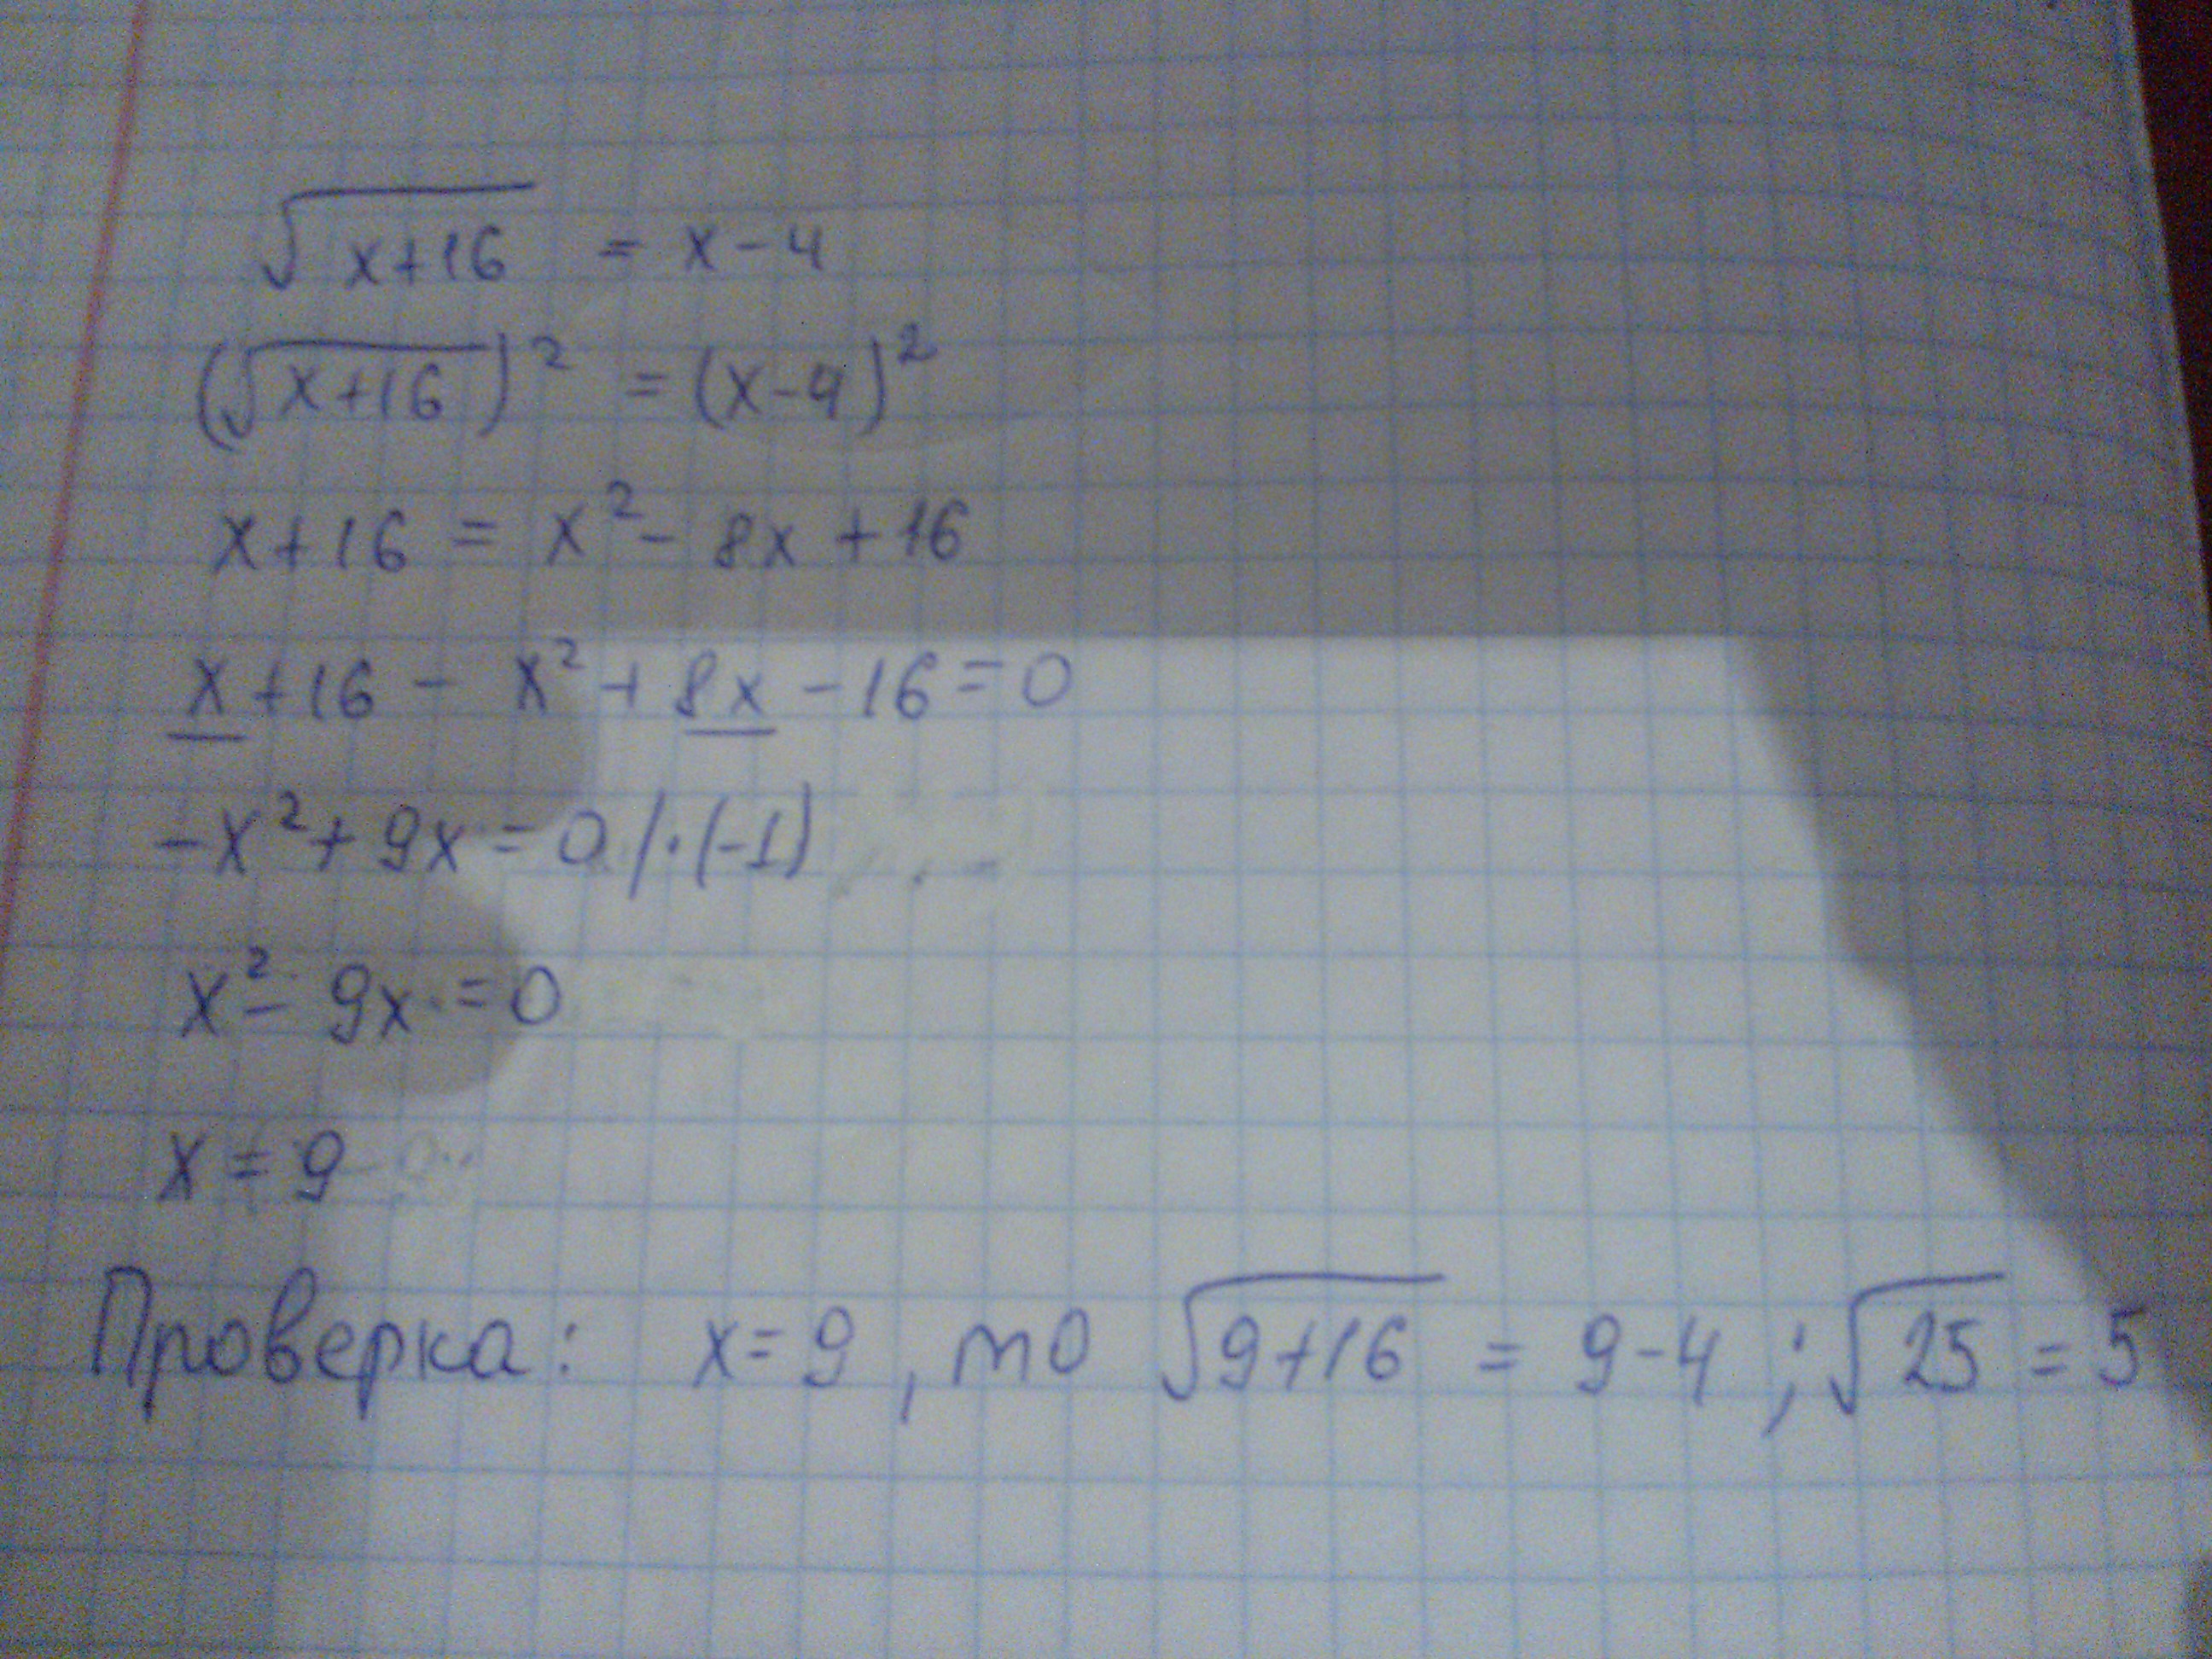 √(x+16) = x-4
(√(x+16))² = (x-4)²
x+16 = x² - 8x + 16
x + 16 - x² + 8x - 16 = 0
-x² + 9x = 0 / · (-1)
x² - 9x = 0
x = 9
Проверка: x = 9, то √(9+16) = 9-4 ; √25 = 5